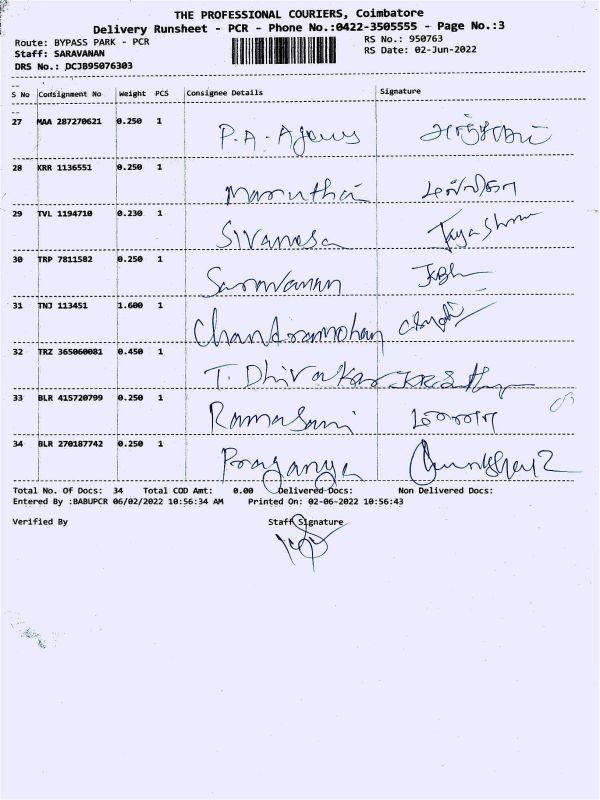 THE PROFESSIONAL COURIERS, Coimbatore
Delivery Runsheet - PCR - Phone No.:0422-3505555 - Page No.:3
Route: BYPASS PARK - PCR RS No.: 950763
Staff: SARAVANAN RS Date: 02-Jun-2022
DRS No.: DCJB95076303
S No Consignment No Weight PCS Consignee Details Signature
27 MAA 287270621 0.250 1 P.A.
28 KRR 1136551 0.250 1 Maruthai
29 TVL 1194710 0.230 1 Sivanesa
30 TRP 7811582 0.250 1 Saravanan
31 TNJ 113451 1.600 1 Chandramohan
32 TRZ 365060081 0.450 1 T. Dhivakar
33 BLR 415720799 0.250 1 Ramasami
34 BLR 270187742 0.250 1
Total No. Of Docs: 34 Total COD Amt: 0.00 Delivered Docs: Non Delivered Docs:
Entered By :BABUPCR 06/02/2022 10:56:34 AM Printed On: 02-06-2022 10:56:43
Verified By Staff Signature